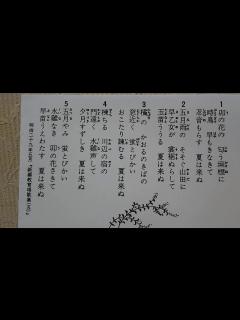 1
卯の花の 匂う垣根に
時鳥 早もきなきて
忍音もらす 夏は来ぬ
2
五月雨の そそぐ山田に
早乙女が 裳裾ぬらして
玉苗ううる 夏は来ぬ
3
橘の かおるのきばの
窓近く 蛍とびかい
おこたり諫むる 夏は来ぬ
4
楝ちる 川辺の宿の
門遠く 水鶏声して
夕月すずしき 夏は来ぬ
5
五月やみ 蛍とびかい
水鶏なき 卯の花さきて
早苗うえわたす 夏は来ぬ